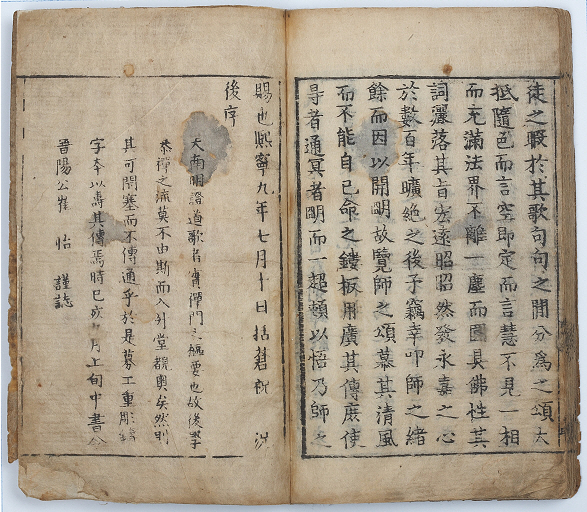 徒之暇於其歌句句之閒分爲之頌大
抵隨色而言空即定而言慧不見一相
而充滿法界不離一塵而圓具佛性其
詞灑落其旨宏遠昭昭然發永嘉之心
於數百年曠絶之後予竊幸叩師之緒
餘而因以開明故覽師之頌慕其清風
而不能自已命之鏤板用廣其傳庶使
㝵者通冥者明而一超頓以悟乃師之
賜也熙寧九年七月十日括蒼祝 況
後序
夫南明證道歌者實禪門之樞要也故後學
叅禪之流莫不由斯而入升堂覩奧矣然則
其可閉塞而不傳通乎於是募工重彫鑄
字本以壽其傳焉時己亥九月上旬中書令
晉陽公崔 怡 謹誌